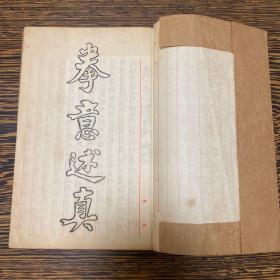 拳意述真